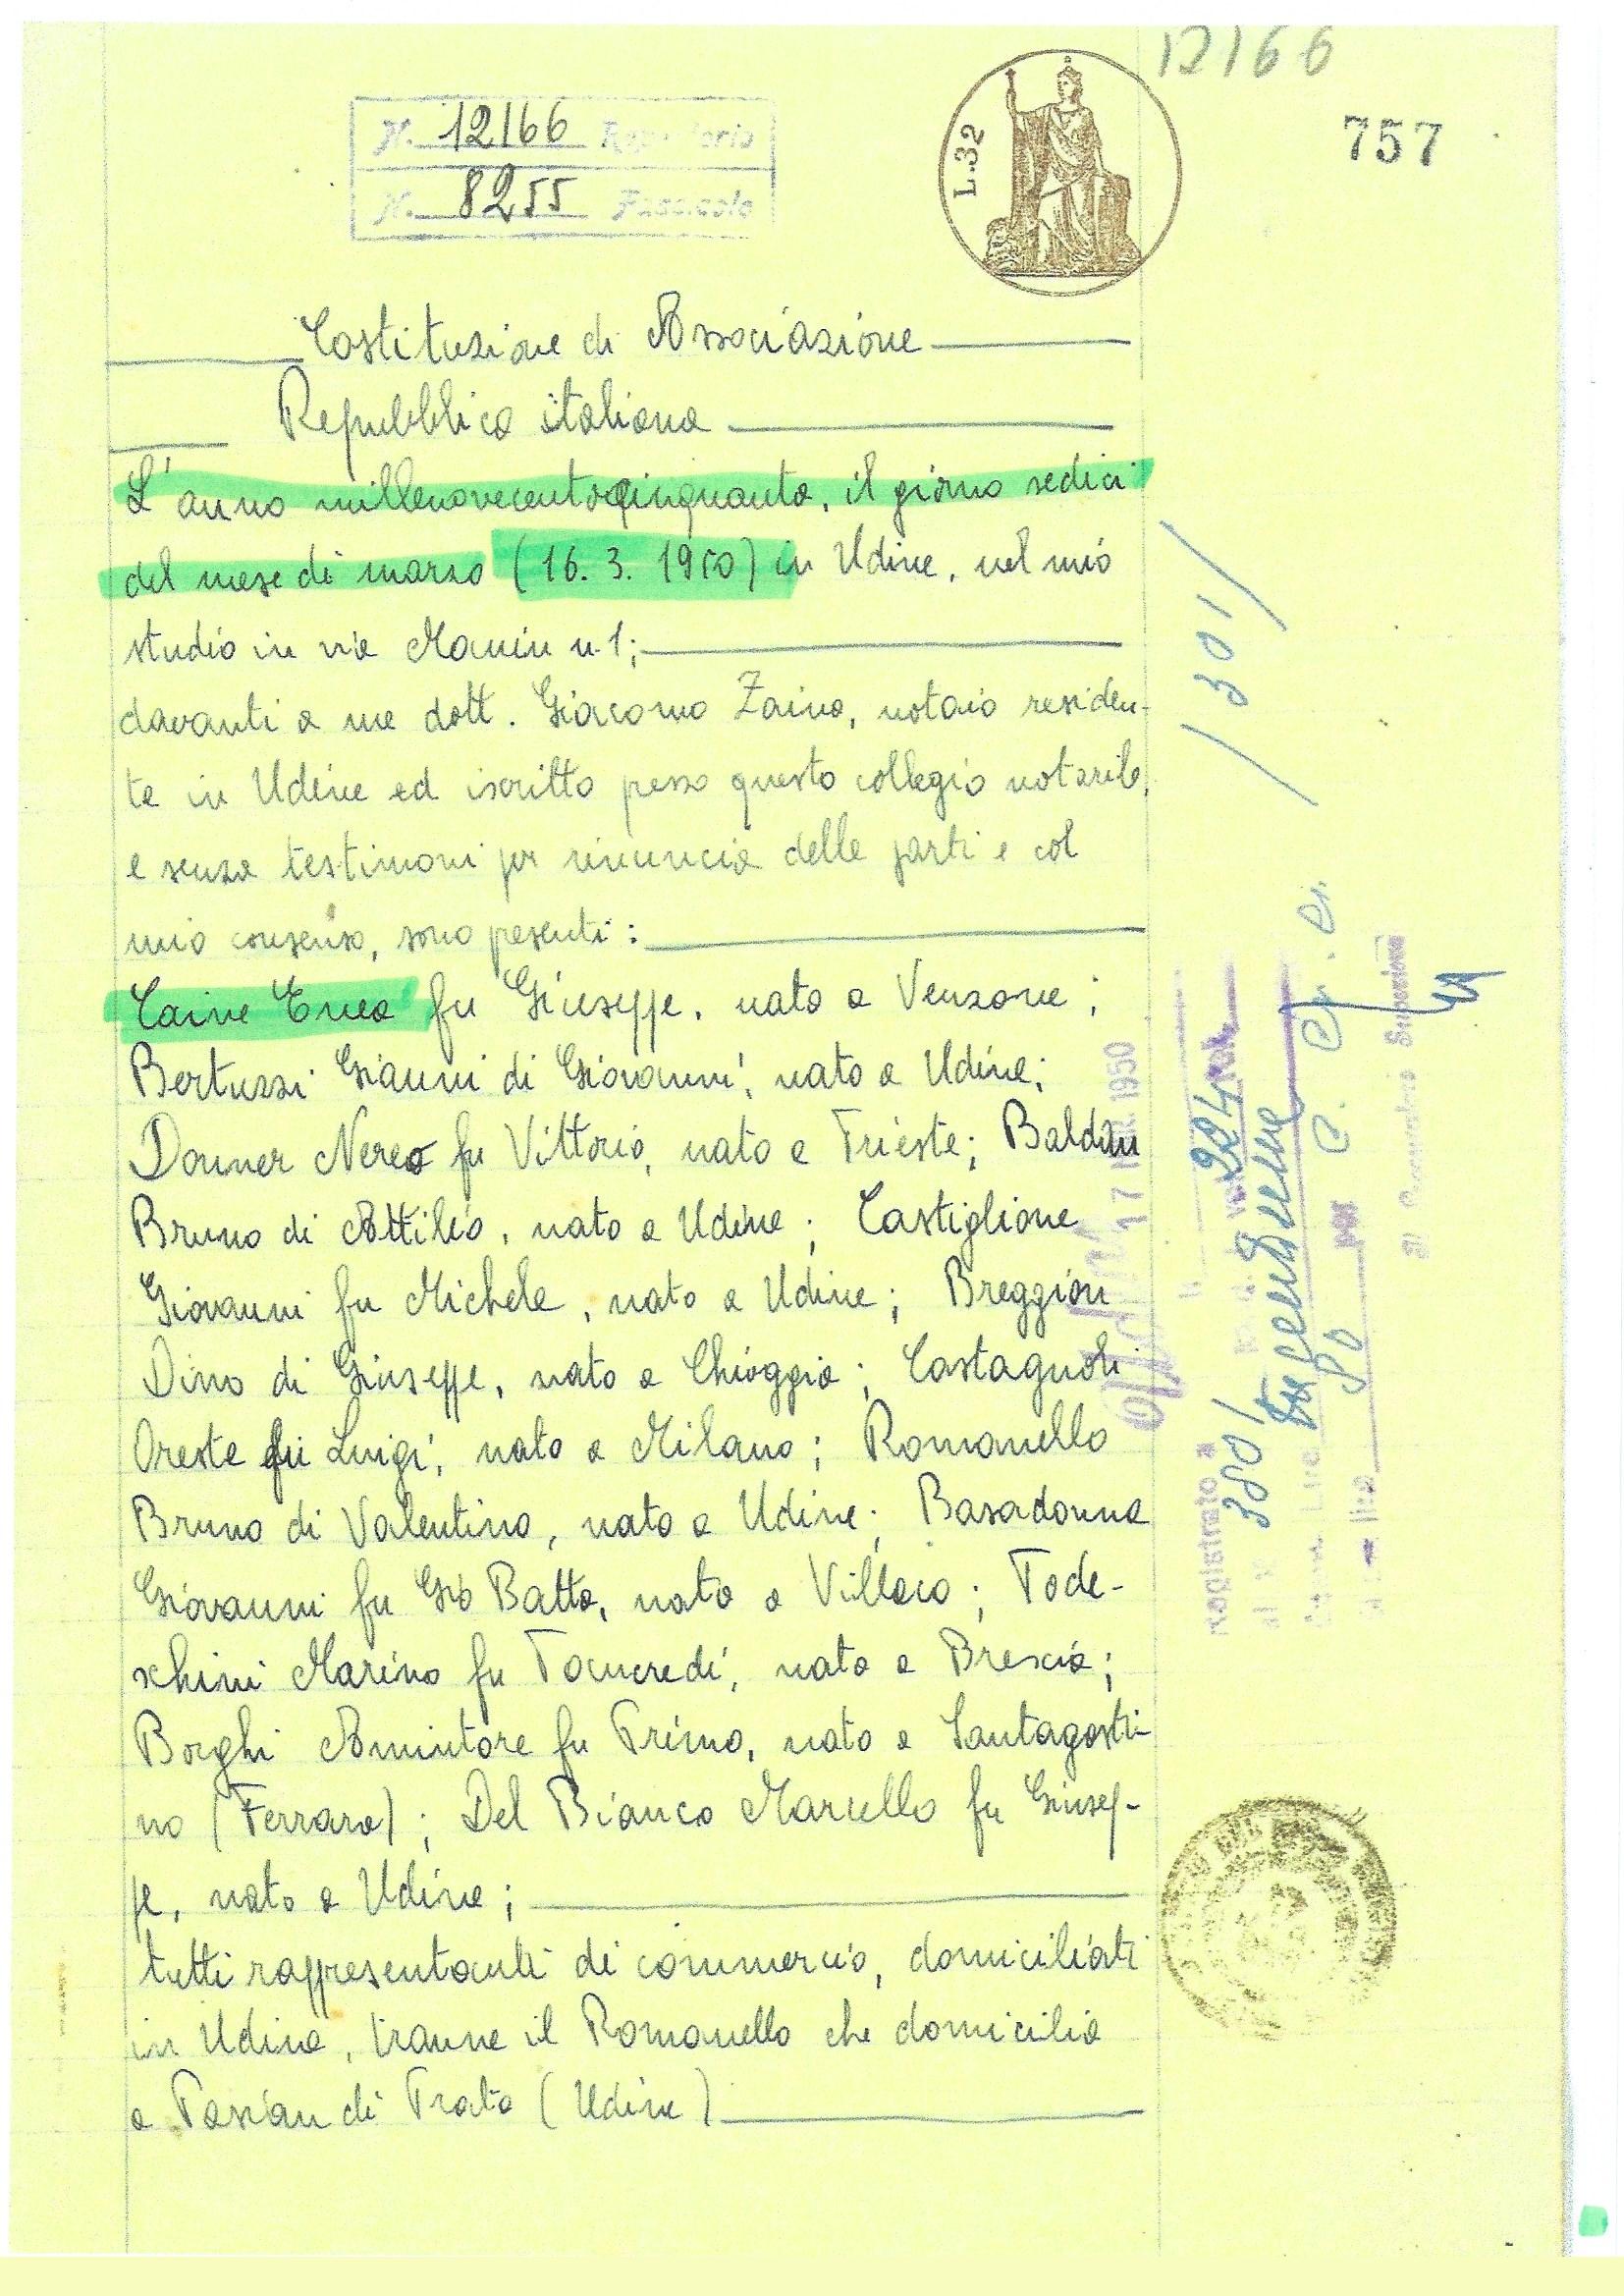 12166
757
N. 12166 Repertorio
N. 8255 Fascicolo
L.32
Costituzione di Associazione
Repubblica italiana
L'anno millenovecentocinquanta, il giorno sedici
del mese di marzo (16. 3. 1950) in Udine, nel mio
studio in via Manin n. 1;
davanti a me dott. Giacomo Zaino, notaio residen-
te in Udine ed iscritto presso questo collegio notarile,
e senza testimoni per rinuncia delle parti e col
mio consenso, sono presenti:
Caine Enea fu Giuseppe, nato a Venzone;
Bertuzzi Gianni di Giovanni, nato a Udine;
Donner Nereo fu Vittorio, nato a Trieste; Baldin
Bruno di Attilio, nato a Udine; Castiglione
Giovanni fu Michele, nato a Udine; Breggion
Dino di Giuseppe, nato a Chioggia; Castagnoli
Oreste fu Luigi, nato a Milano; Romanello
Bruno di Valentino, nato a Udine; Basadonna
Giovanni fu Gio Batta, nato a Villaco; Tode-
schini Marino fu Tancredi, nato a Brescia;
Borghi Amintore fu Primo, nato a Santagosti-
no (Ferrara); Del Bianco Marcello fu Giusep-
pe, nato a Udine;
tutti rappresentanti di commercio, domiciliati
in Udine, tranne il Romanello che domicilia
a Pasian di Prato (Udine)
/301/
Registrato a
17 1950
380/
224